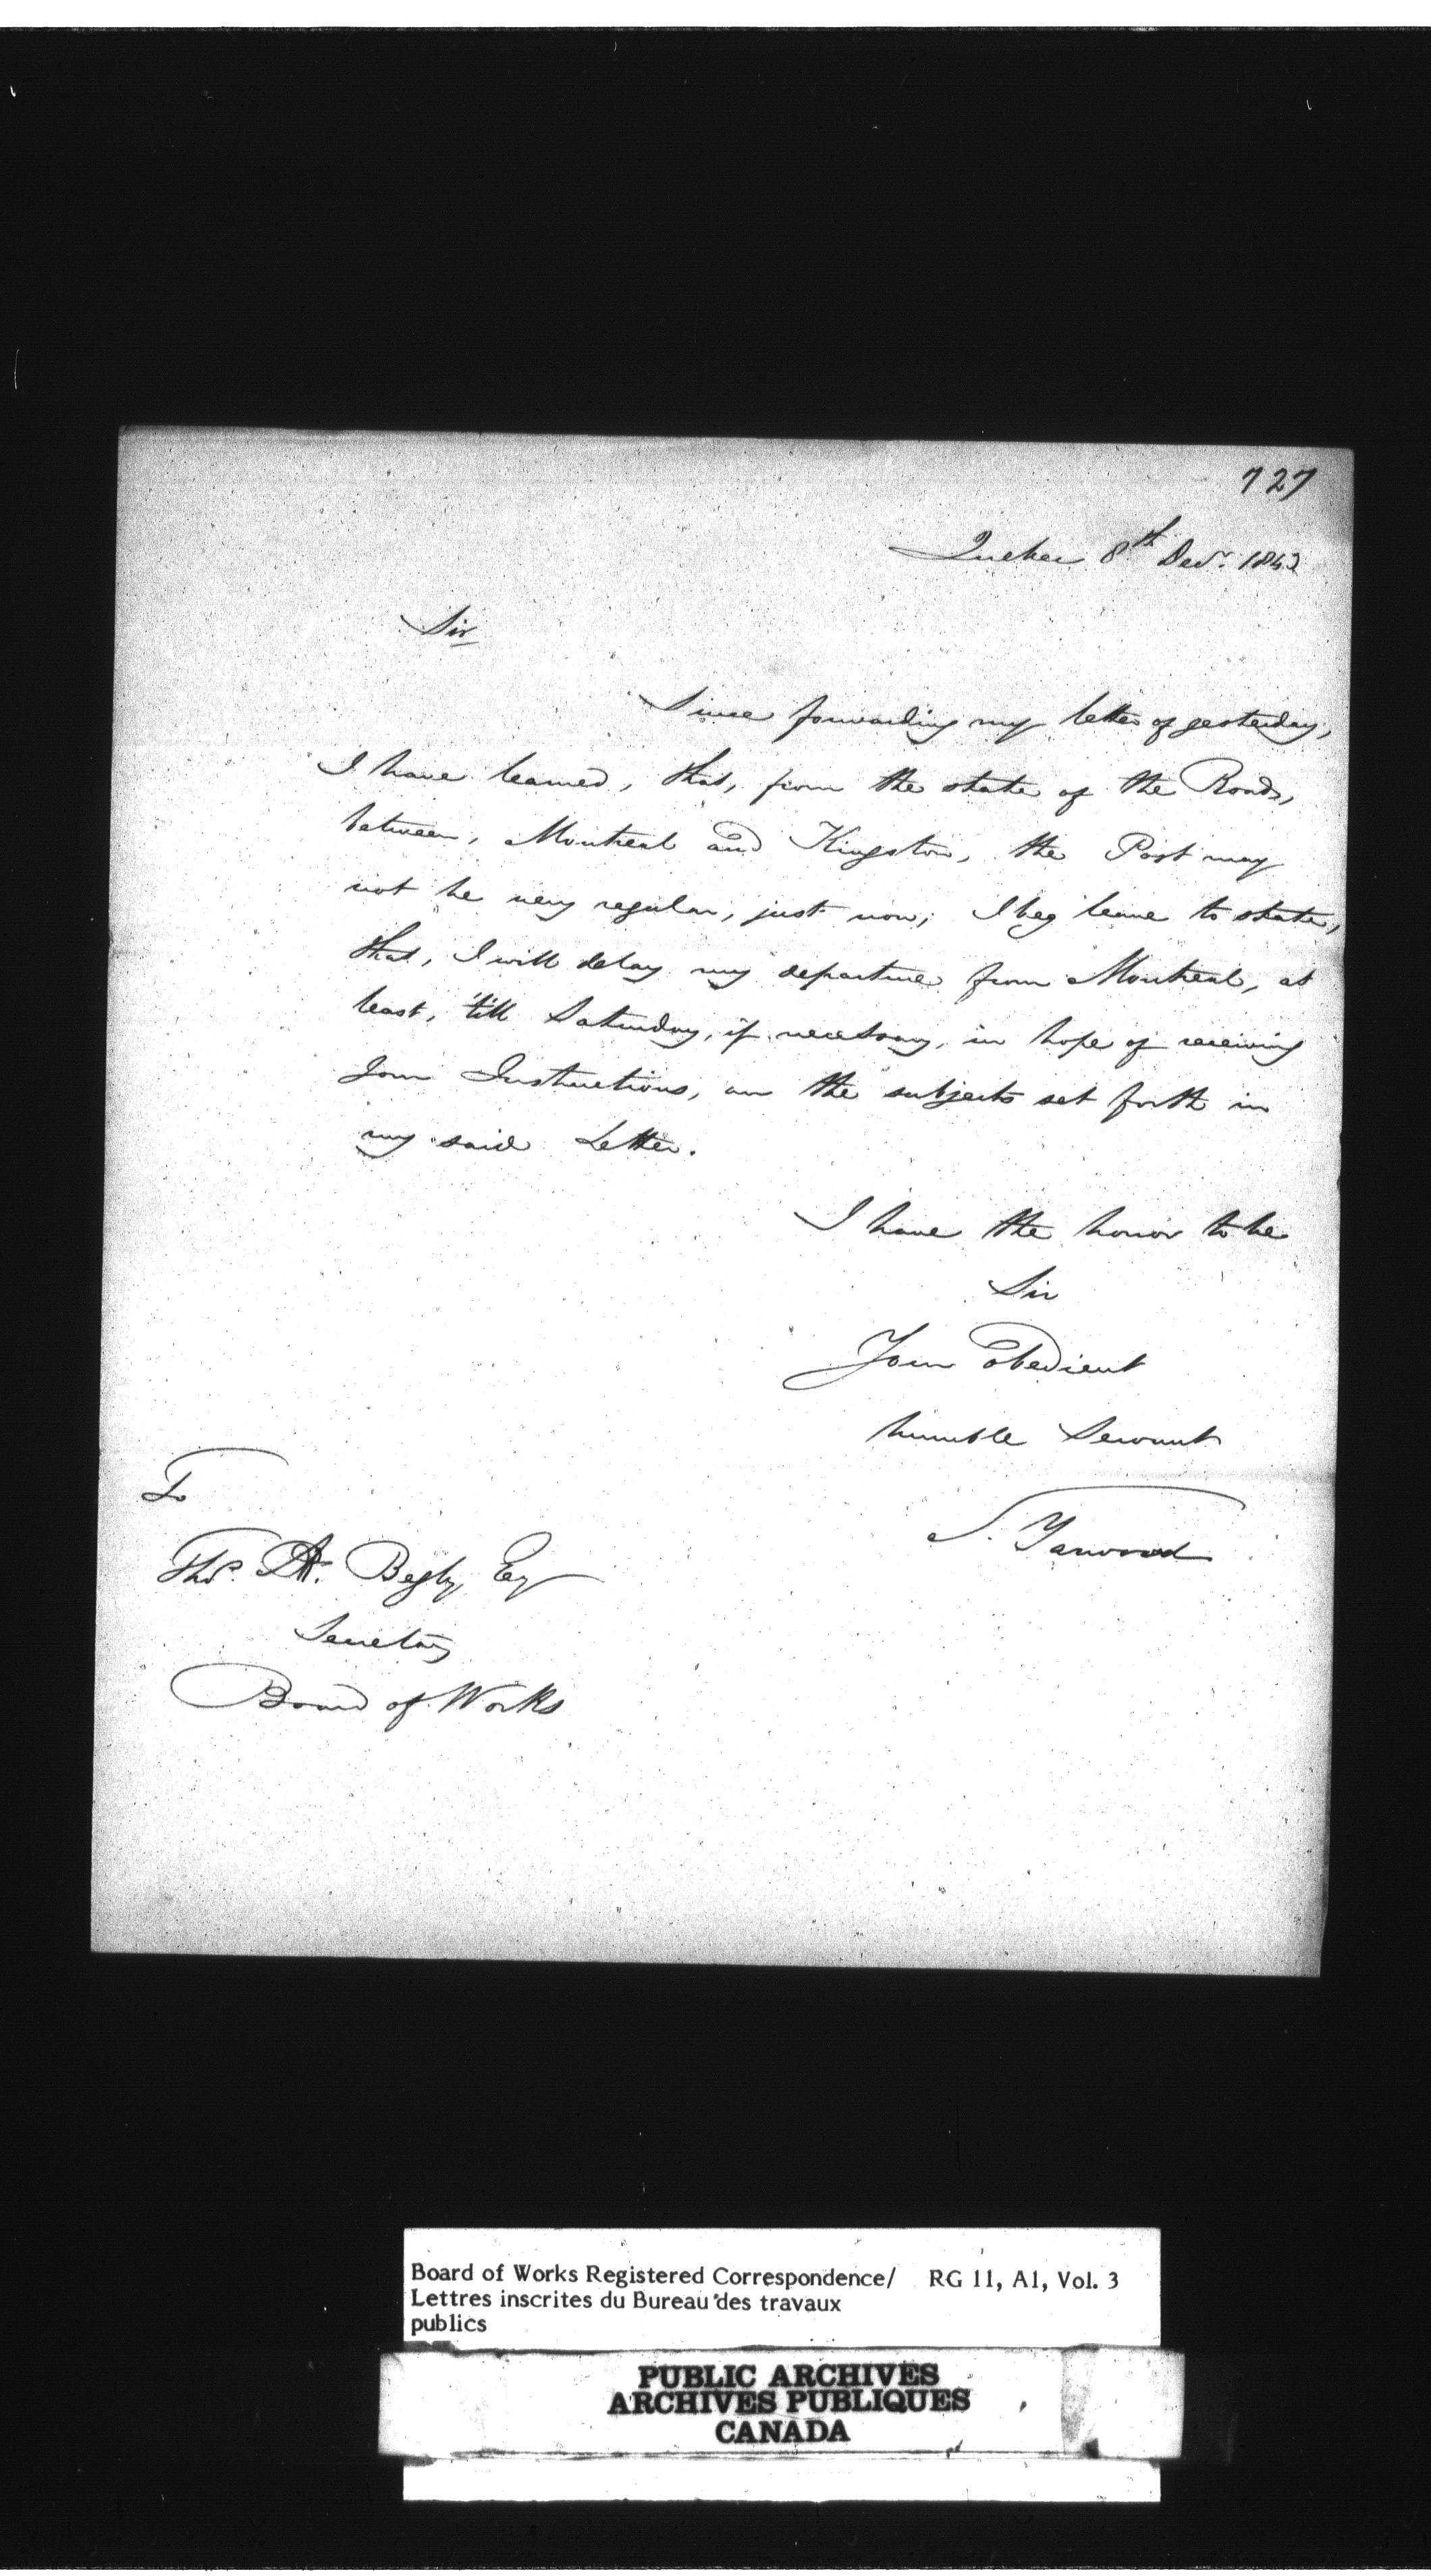 727
Quebec 8th Decr. 1842
Sir
Since forwarding my letter of yesterday,
I have learned, that, from the state of the Roads,
between, Montreal and Kingston, the Post may
not be very regular, just now; I beg leave to state,
that, I will delay my departure from Montreal, at
least, 'till Saturday, if necessary, in hope of receiving
Your Instructions, on the subjects set forth in
my said Letter.
I have the honor to be
Sir
Your Obedient
humble Servant
S. Yarwood
To
Thos. A. Begly Esq
Secretary
Board of Works
Board of Works Registered Correspondence/ RG 11, A1, Vol. 3
Lettres inscrites du Bureau des travaux
publics
PUBLIC ARCHIVES
ARCHIVES PUBLIQUES
CANADA